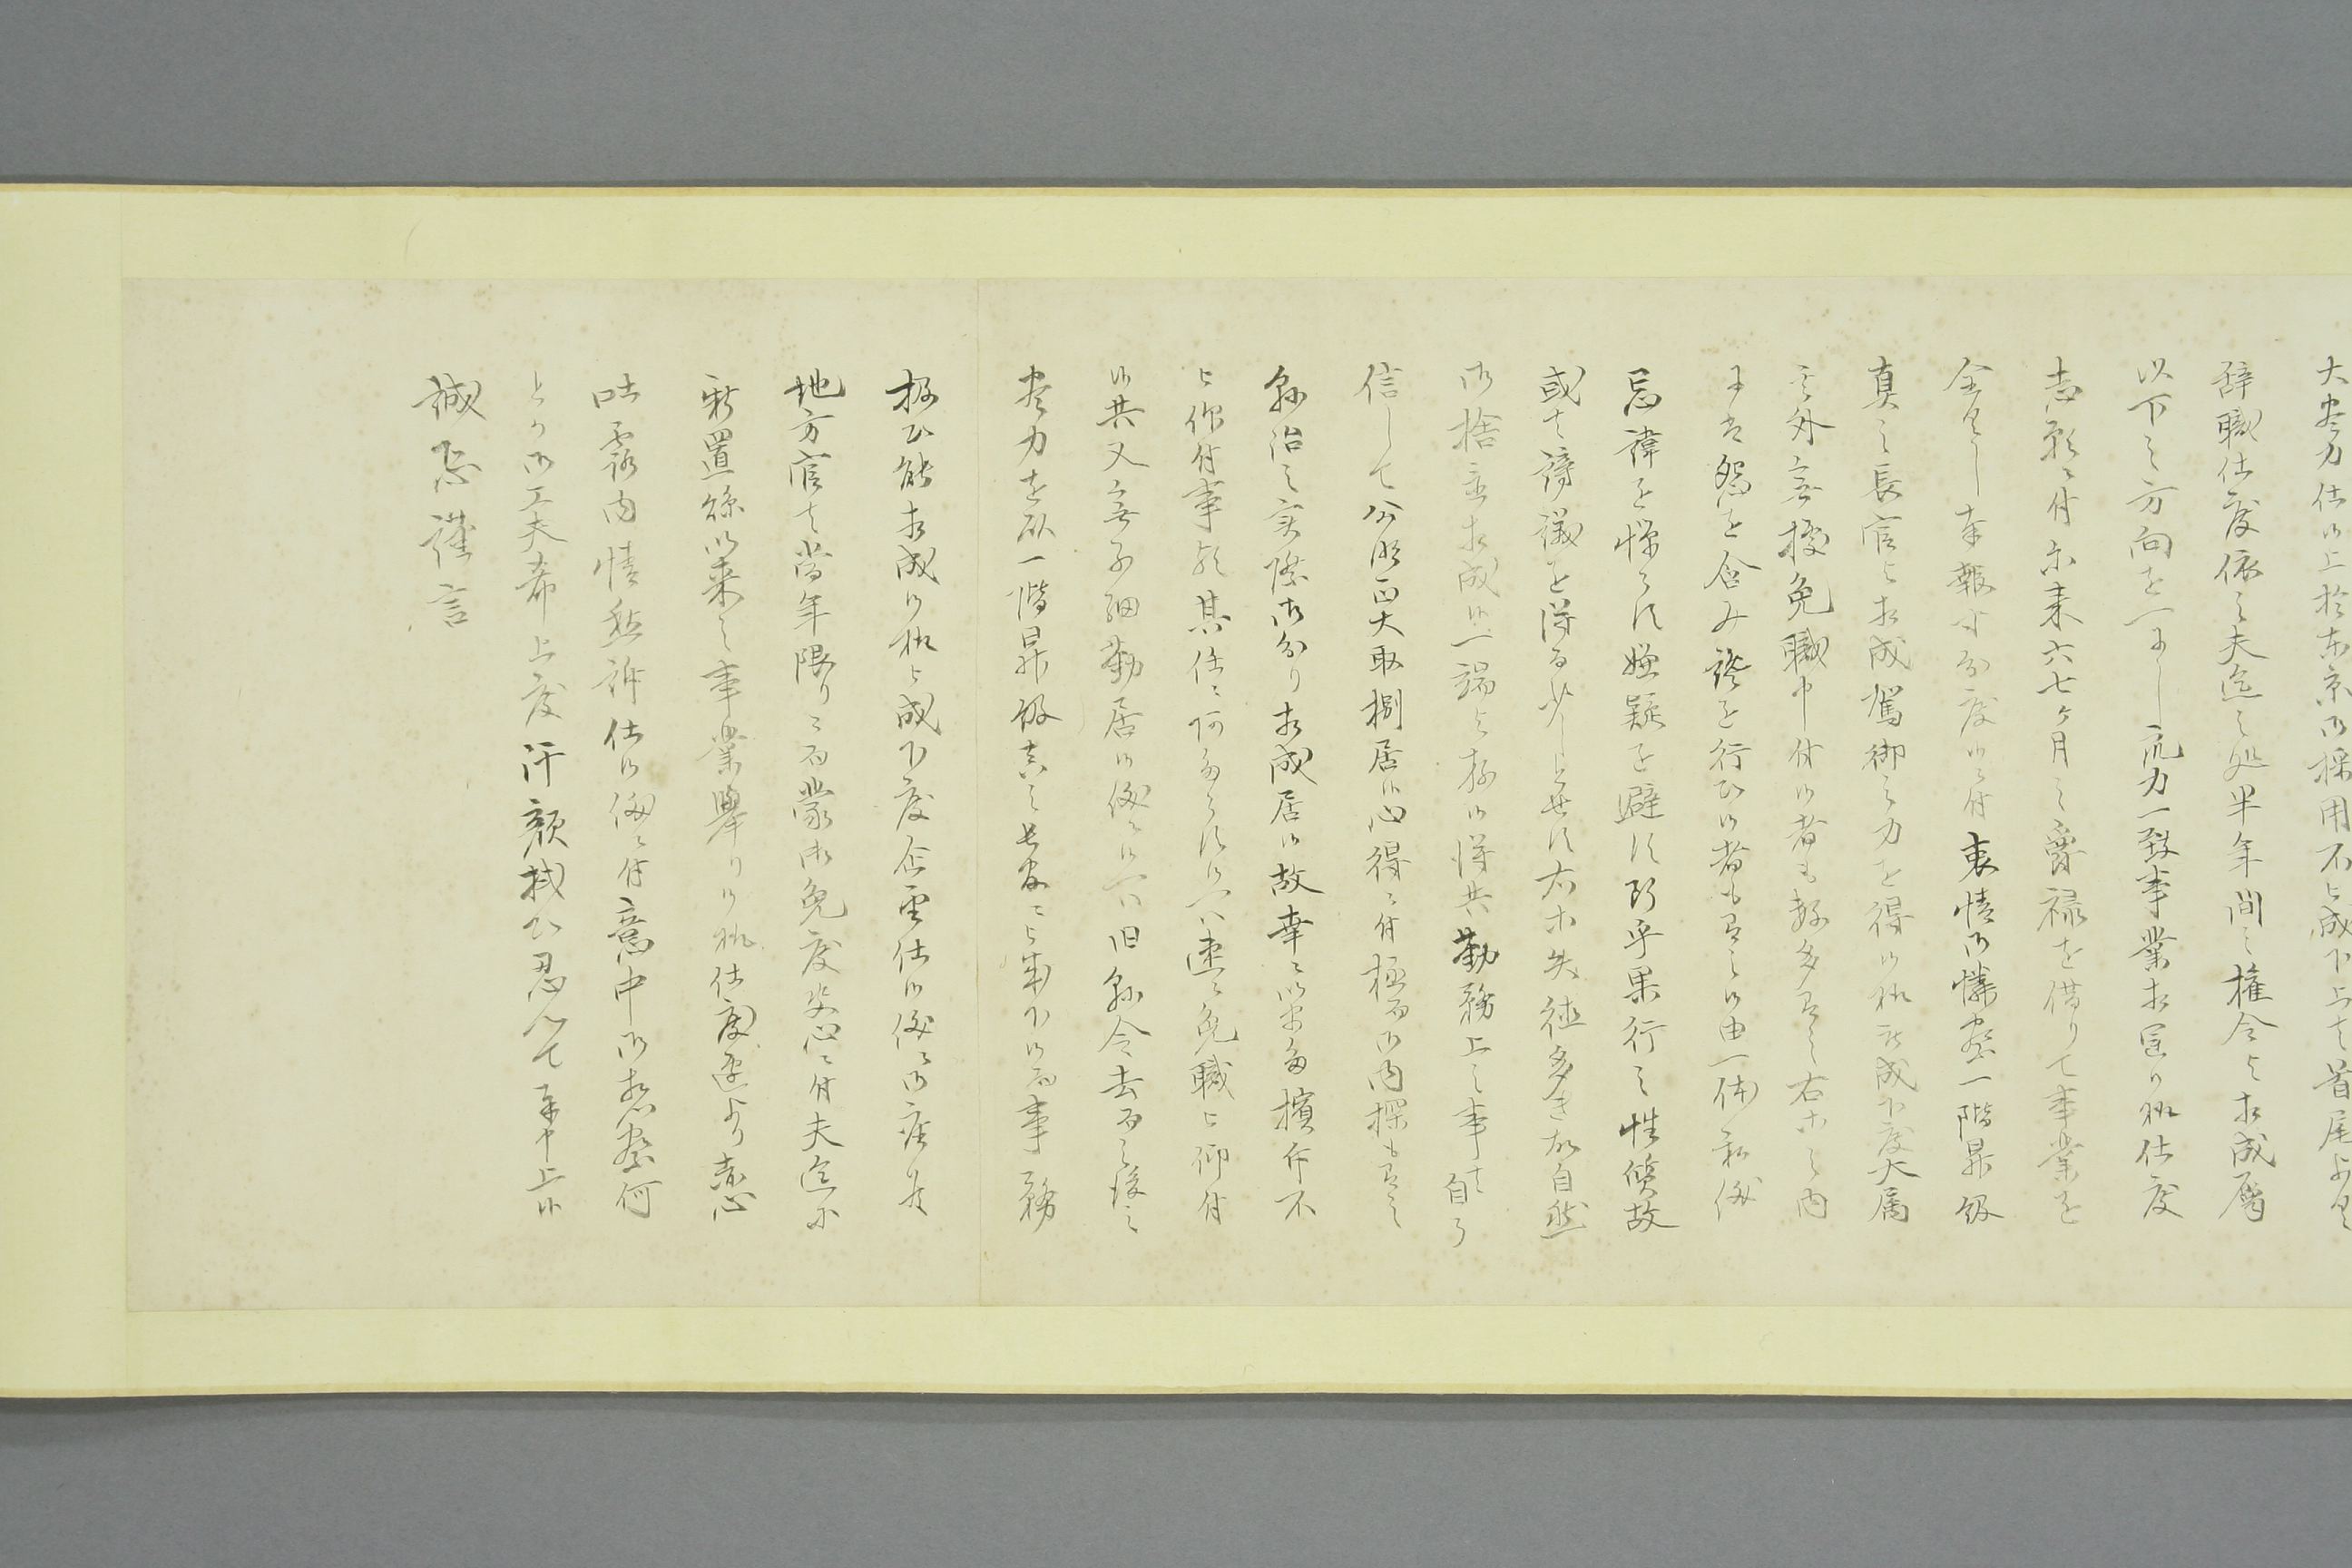 大尽力仕候上於東京御採用不被成下上者首尾よく
辞職仕度依之夫迄之処半年間之権令と相成属
以下之方向を一にし戮力一致事業相運ひ候様仕度
志願ニ付尓来六七ヶ月之爵禄を借りて事業を
全くし奉報寸分度候ニ付衷情御憐察一階昇級
真之長官と相成駕御之力を得候様被成下度大属
之外官授免職申付候者も数多有之右等之内
には怨を含み讒を行ひ候者も有之候由一体私儀
忌諱を憚らす嫌疑を避けす断乎果行之性質故
或は謗議を得る少しと無す右等失徳多き故自然
御捨置相成候一端と存候得共勤務上之事は自ら
信して公明正大取捌居候心得ニ付極而御内探も有之
県治之実際御分り相成居候故幸ニ以未た擯斥不
被仰付事歟其任ニ何たらす候ハヽ速ニ免職被仰付
候共又無子細勤居候儀ニ候ハヽ旧県令去而之後之
尽力を以一階昇級真之長官ニ被成下候而事務
扱ひ能相成候様被成下度企望仕候儀ニ御座候
地方官は当年限りニ而蒙御免度決心ニ付夫迄ニ
新置県以来之事業挙り候様仕度迚より赤心
吐露内情愁訴仕候儀ニ付意中御恕察何
とか御工夫希上度汗顔拭ひ忍んて奉申上候
誠恐謹言